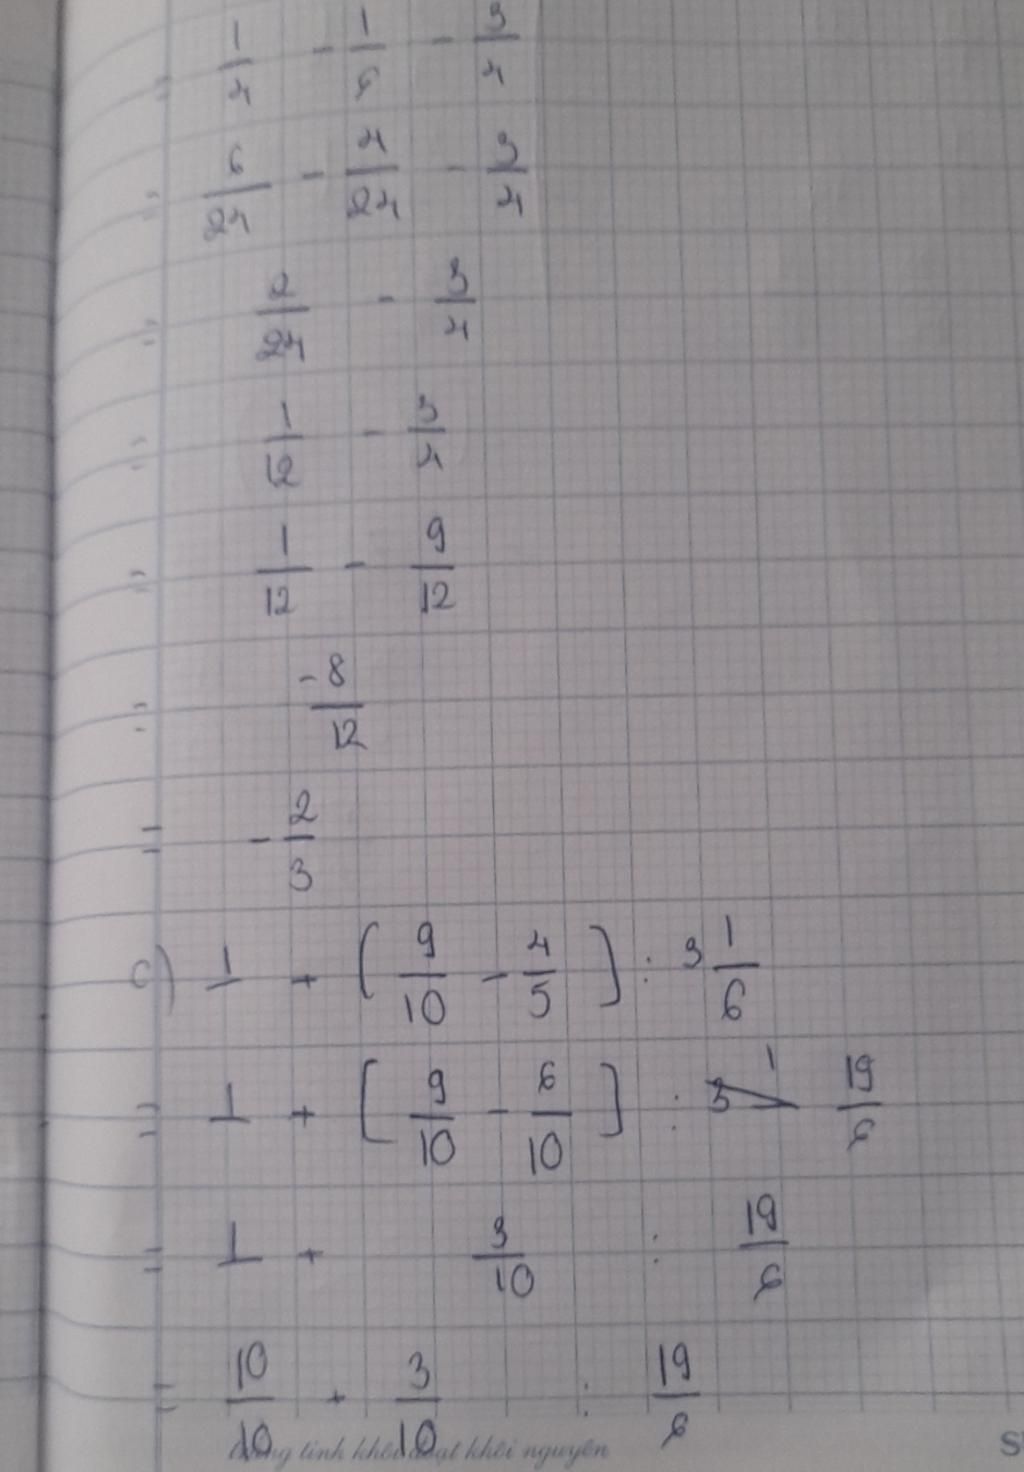 = 1/4 - 1/6 - 3/4
= 6/24 - 4/24 - 3/4
= 2/24 - 3/4
= 1/12 - 3/4
= 1/12 - 9/12
= -8/12
= - 2/3
c) 1 + [ 9/10 - 4/5 ] : 3 1/6
= 1 + [ 9/10 - 6/10 ] : 19/6
= 1 + 3/10 : 19/6
= 10/10 + 3/10 : 19/6
khôi nguyên